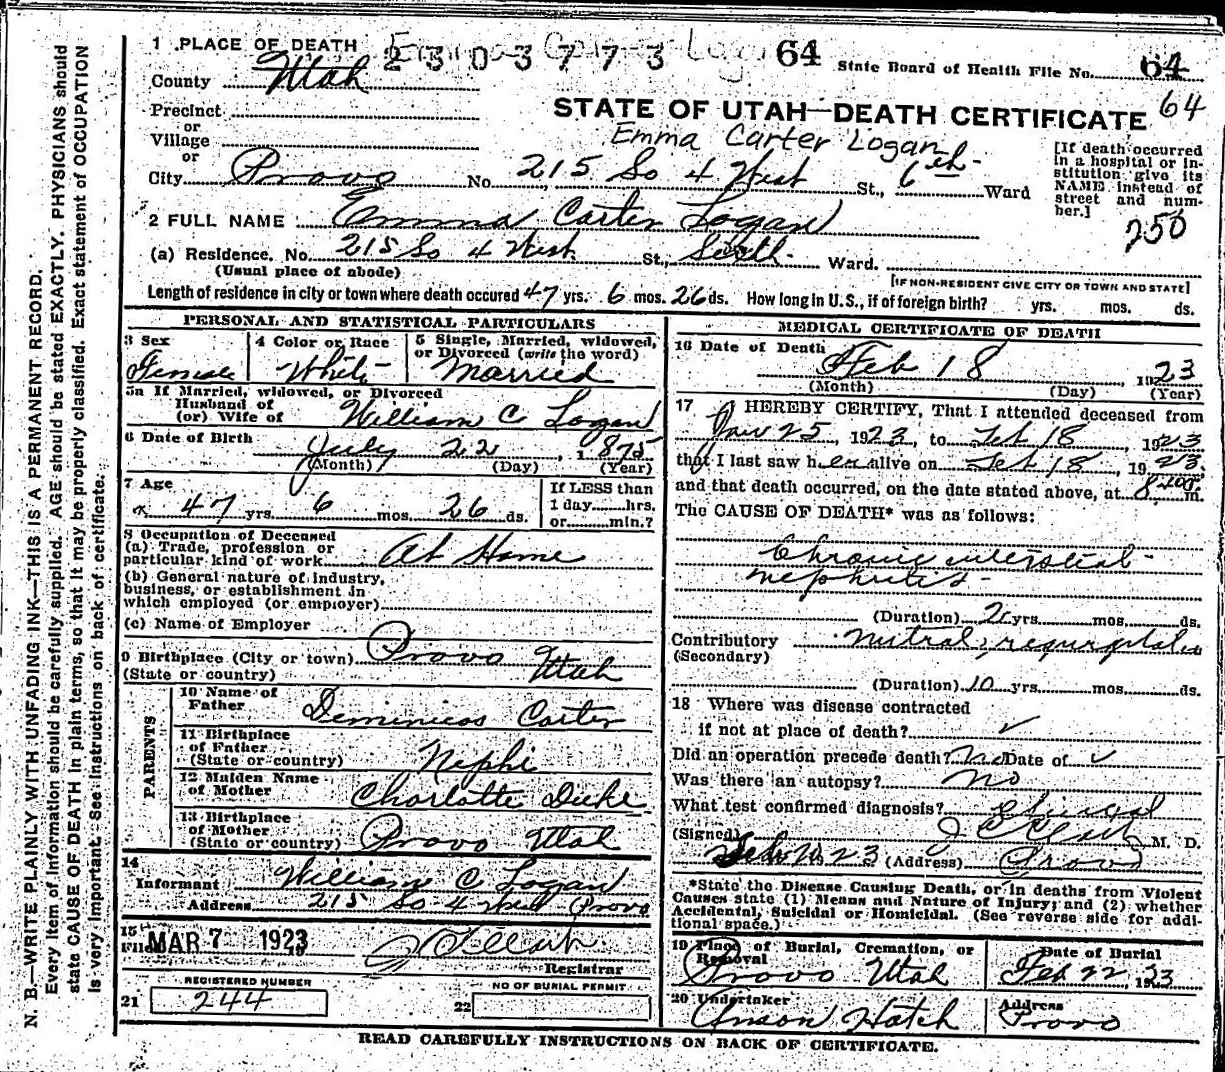 1 PLACE OF DEATH 2303773 64 State Board of Health File No. 64
County Utah 64
STATE OF UTAH—DEATH CERTIFICATE
Precinct
or
Village
or
Emma Carter Logan
City Provo No. 215 So 4 West St., 6th Ward
[If death occurred
in a hospital or in-
stitution give its
NAME instead of
street and num-
ber.]
250
2 FULL NAME Emma Carter Logan
(a) Residence. No. 215 So 4 West St., Sixth Ward.
(Usual place of abode)
[IF NON-RESIDENT GIVE CITY OR TOWN AND STATE]
Length of residence in city or town where death occured 47 yrs. 6 mos. 26 ds. How long in U.S., if of foreign birth? yrs. mos. ds.
PERSONAL AND STATISTICAL PARTICULARS
3 Sex Female
4 Color or Race White
5 Single, Married, widowed,
or Divorced (write the word)
Married
5a If Married, widowed, or Divorced
Husband of
(or) Wife of William C Logan
6 Date of Birth July 22, 1875
(Month) (Day) (Year)
7 Age 47 yrs. 6 mos. 26 ds.
If LESS than
1 day......hrs.
or......min.?
8 Occupation of Deceased
(a) Trade, profession or
particular kind of work At Home
(b) General nature of industry,
business, or establishment in
which employed (or employer)
(c) Name of Employer
9 Birthplace (City or town) Provo
(State or country) Utah
PARENTS
10 Name of
Father Deminicus Carter
11 Birthplace
of Father
(State or country) Nephi
12 Maiden Name
of Mother Charlotte Duke
13 Birthplace
of Mother
(State or country) Provo Utah
14
Informant William C Logan
Address 215 So 4 West Provo
15
Filed MAR 7 1923
Registrar
REGISTERED NUMBER
21 244
NO OF BURIAL PERMIT
22
MEDICAL CERTIFICATE OF DEATH
16 Date of Death Feb 18, 1923
(Month) (Day) (Year)
17 I HEREBY CERTIFY, That I attended deceased from
Jan 25, 1923, to Feb 18, 1923
that I last saw her alive on Feb 18, 1923
and that death occurred, on the date stated above, at 8 m.
The CAUSE OF DEATH* was as follows:
Chronic interstitial
nephritis
(Duration) 2 yrs. mos. ds.
Contributory mitral regurgitation
(Secondary)
(Duration) 10 yrs. mos. ds.
18 Where was disease contracted
if not at place of death? ✓
Did an operation precede death? no Date of ✓
Was there an autopsy? no
What test confirmed diagnosis? Clinical
(Signed) M. D.
Feb 20 23 (Address) Provo
*State the Disease Causing Death, or in deaths from Violent
Causes state (1) Means and Nature of Injury; and (2) whether
Accidental, Suicidal or Homicidal. (See reverse side for addi-
tional space.)
19 Place of Burial, Cremation, or
Removal
Provo Utah
Date of Burial
Feb 22, 1923
20 Undertaker
Anson Hatch
Address
Provo
READ CAREFULLY INSTRUCTIONS ON BACK OF CERTIFICATE.
N. B.—WRITE PLAINLY WITH UNFADING INK—THIS IS A PERMANENT RECORD.
Every item of information should be carefully supplied. AGE should be stated EXACTLY. PHYSICIANS should
state CAUSE OF DEATH in plain terms, so that it may be properly classified. Exact statement of OCCUPATION
is very important. See instructions on back of certificate.